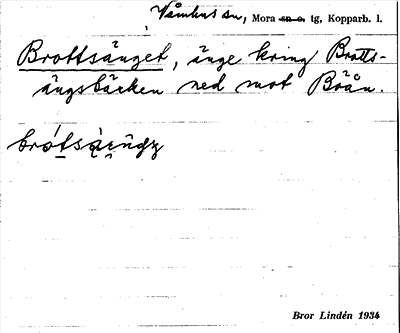 Våmhus sn, Mora sn o. tg, Kopparb. l.
Brottsänget, änge kring Brotts-
ängsbäcken ned mot Bråån.
Bror Lindén 1934